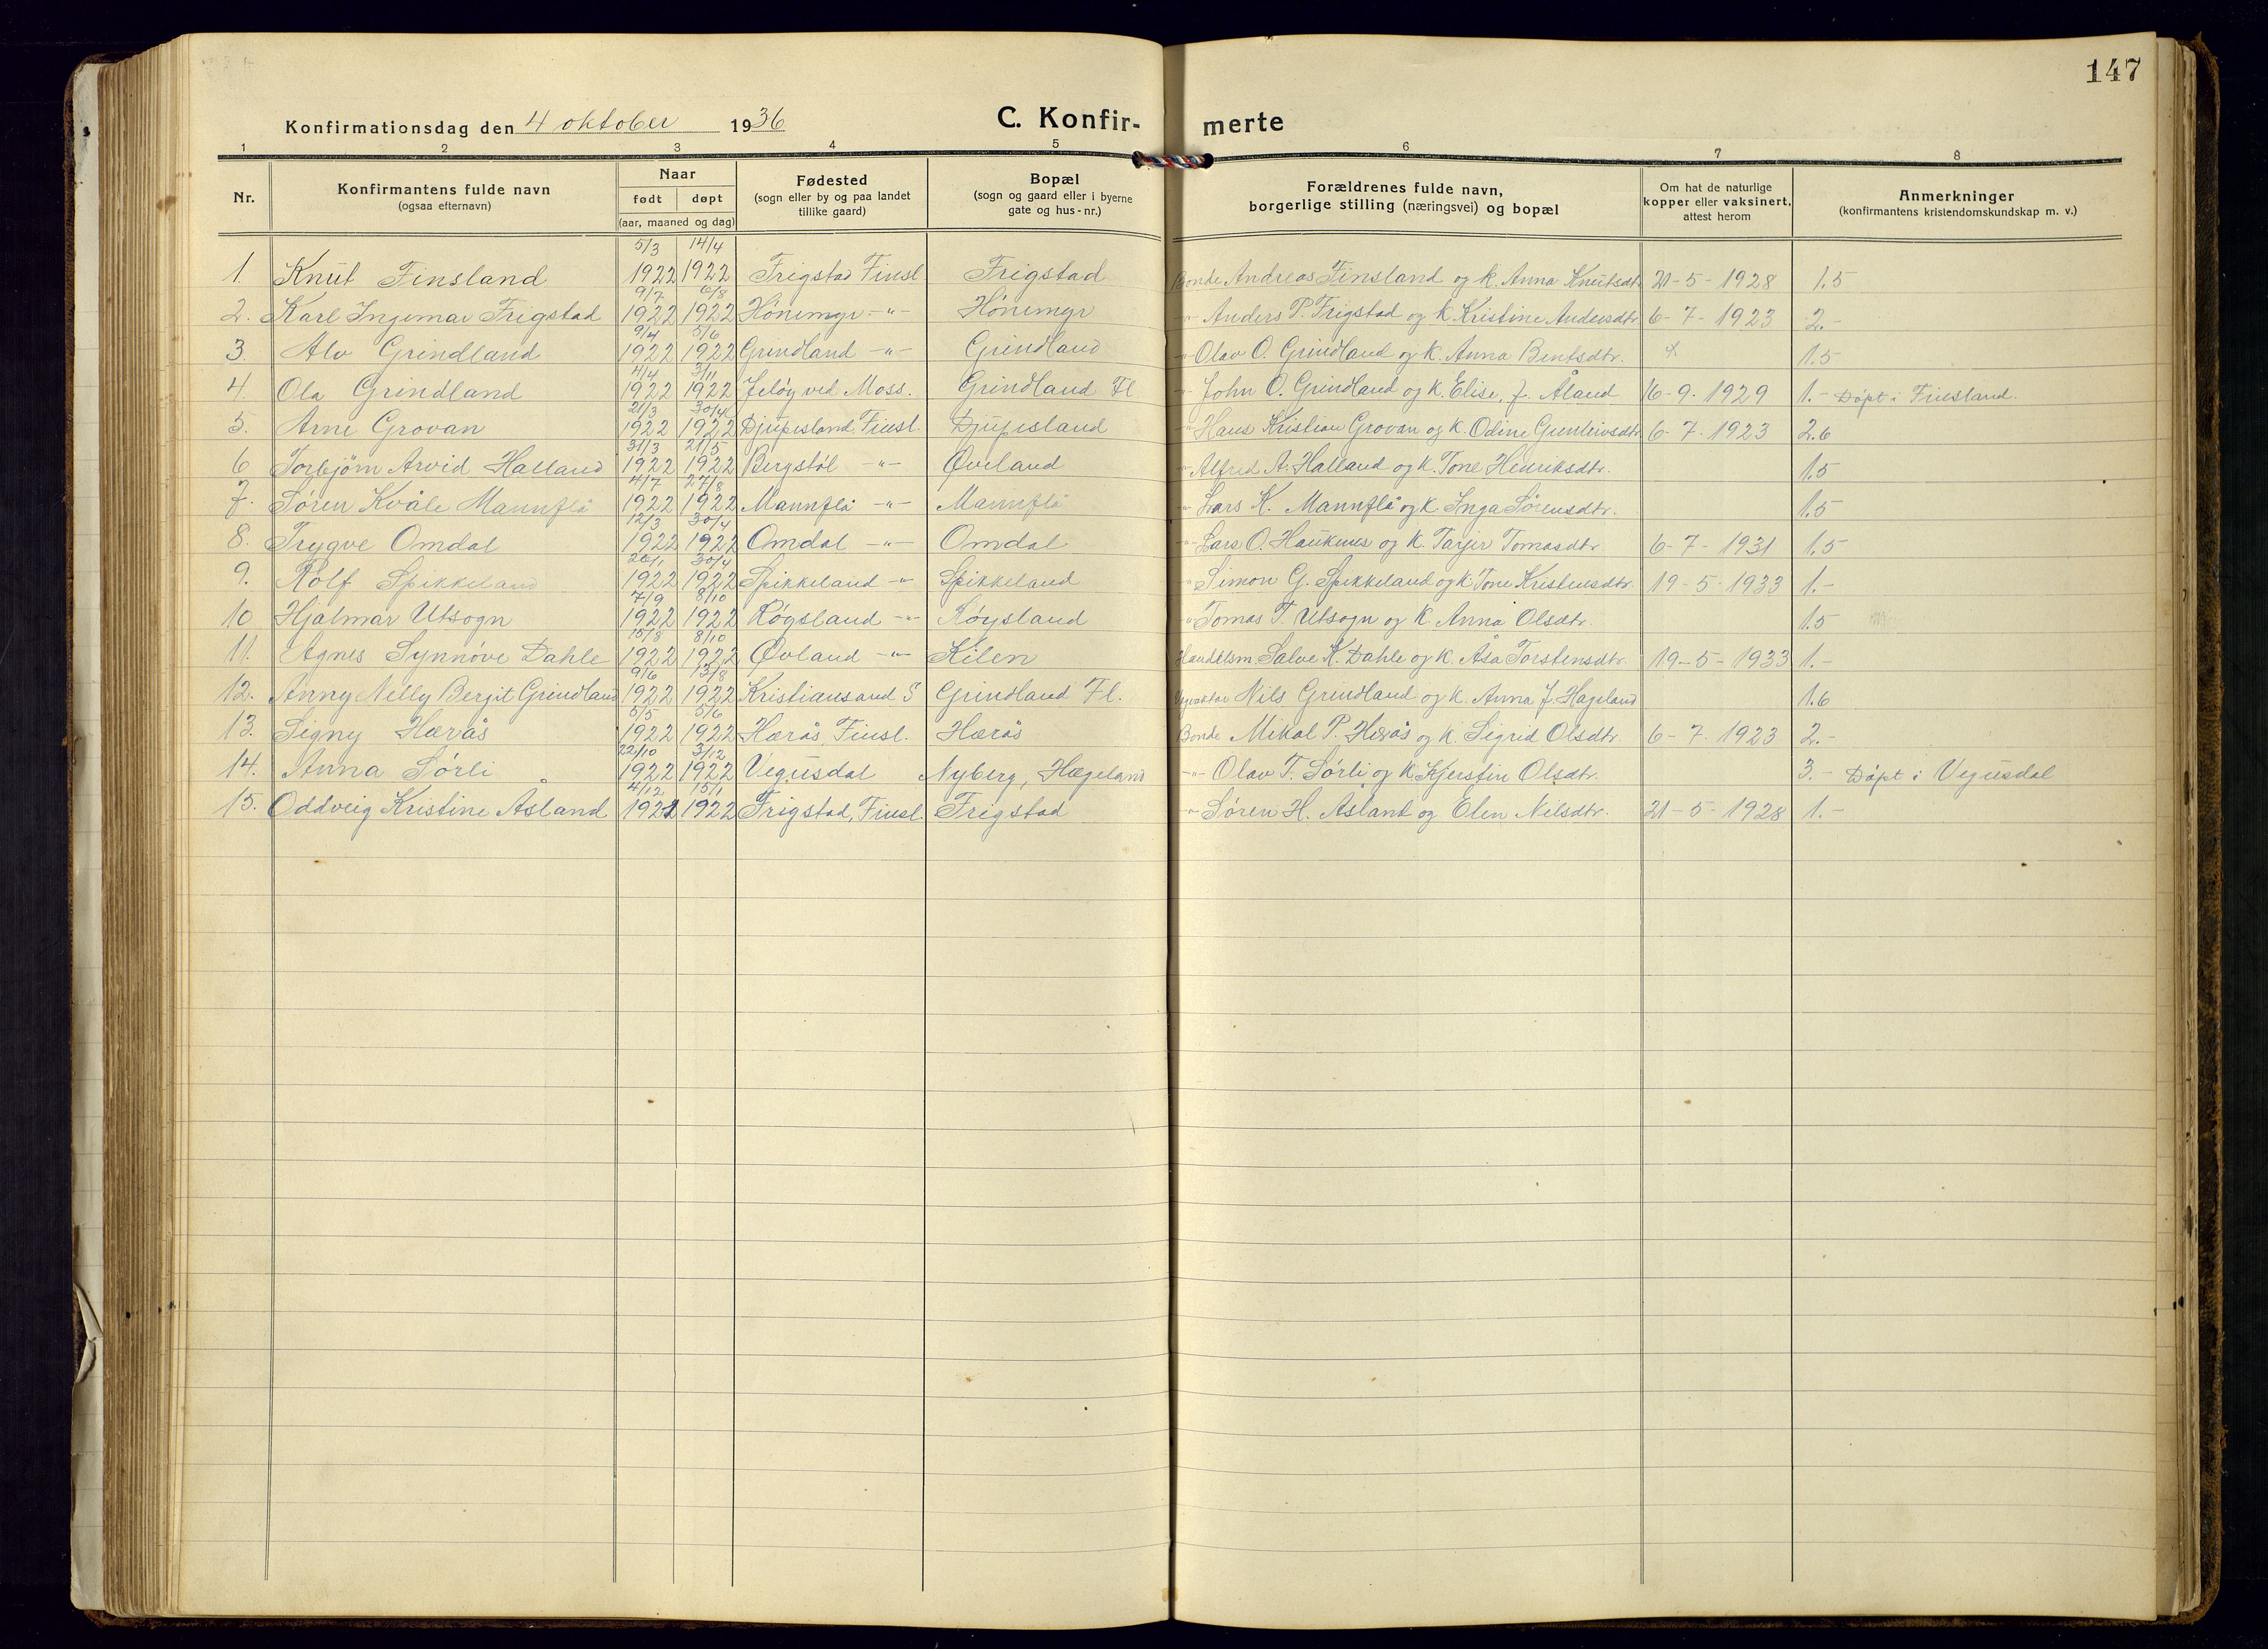 147
Konfirmationsdag den 4 oktober 1936
C. Konfir-merte
1 2 3 4 5 6 7 8
Nr.
Konfirmantens fulde navn
(ogsaa efternavn)
Naar
født døpt
(aar, maaned og dag)
Fødested
(sogn eller by og paa landet
tillike gaard)
Bopæl
(sogn og gaard eller i byerne
gate og hus-nr.)
Forældrenes fulde navn,
borgerlige stilling (næringsvei) og bopæl
Om hat de naturlige
kopper eller vaksinert,
attest herom
Anmerkninger
(konfirmantens kristendomskundskap m. v.)
1. Knut Finsland 5/3 1922 14/4 1922 Frigstad Finsl. Frigstad Bonde Andreas Finsland og k. Anna Knutsdtr. 21-5-1928 1.5
2. Karl Ingemar Frigstad 9/7 1922 6/8 1922 Hónemyr -"- Hónemyr -"- Anders P. Frigstad og k. Kristine Andersdtr. 6-7-1923 2.-
3. Alv Grindland 9/4 1922 5/6 1922 Grindland -"- Grindland -"- Olav O. Grindland og k. Anna Bentsdtr. 1.5
4. Ola Grindland 4/4 1922 3/11 1922 Jeløy ved Moss. Grindland Fl -"- John O. Grindland og k. Elise, f. Åland 16-9-1929 1.- Døpt i Finsland.
5. Arne Grovan 21/3 1922 30/4 1922 Djupesland, Finsl. Djupesland -"- Hans Kristian Grovan og k. Odine Gunleivsdtr. 6-7-1923 2.6
6 Torbjörn Arvid Halland 31/3 1922 21/5 1922 Bergstøl -"- Øveland -"- Alfred A. Halland og k. Tone Henriksdtr. 1.5
7. Søren Kvåle Mannflå 4/7 1922 27/8 1922 Mannflå -"- Mannflå -"- Lars K. Mannflå og k. Inga Sørensdtr. 1.5
8. Trygve Omdal 12/3 1922 30/4 1922 Omdal -"- Omdal -"- Lars O. Haukenes og k. Tarjer Tomasdtr. 6-7-1931 1.5
9. Rolf Spikkeland 26/1 1922 30/4 1922 Spikkeland -"- Spikkeland -"- Simon G. Spikkeland og k. Tone Kristensdtr. 19-5-1933 1.-
10 Hjalmar Utsogn 7/9 1922 8/10 1922 Røysland -"- Røysland -"- Tomas T. Utsogn og k. Anna Olsdtr. 1.5
11. Agnes Synnøve Dahle 15/8 1922 8/10 1922 Øvland -"- Kilen Handelsm. Salve K. Dahle og k. Åsa Torstensdtr. 19-5-1933 1.-
12. Anny Nelly Bergit Grindland 9/6 1922 13/8 1922 Kristiansand S Grindland Fl. Nils Grindland og k. Anna J. Hageland 1.6
13. Signy Hærås 5/5 1922 5/6 1922 Hærås, Finsl. Hærås Bonde Mikal P. Hærås og k. Sigrid Olsdtr. 6-7-1923 2.-
14. Anna Sørli 22/10 1922 3/12 1922 Vegusdal Nyberg, Hægeland -"- Olav T. Sørli og k. Kjerstin Olsdtr. 3.- Døpt i Vegusdal
15. Oddveig Kristine Åsland 4/12 1921 15/1 1922 Frigstad, Finsl. Frigstad -"- Søren H. Åsland og Elen Nilsdtr. 21-5-1928 1.-